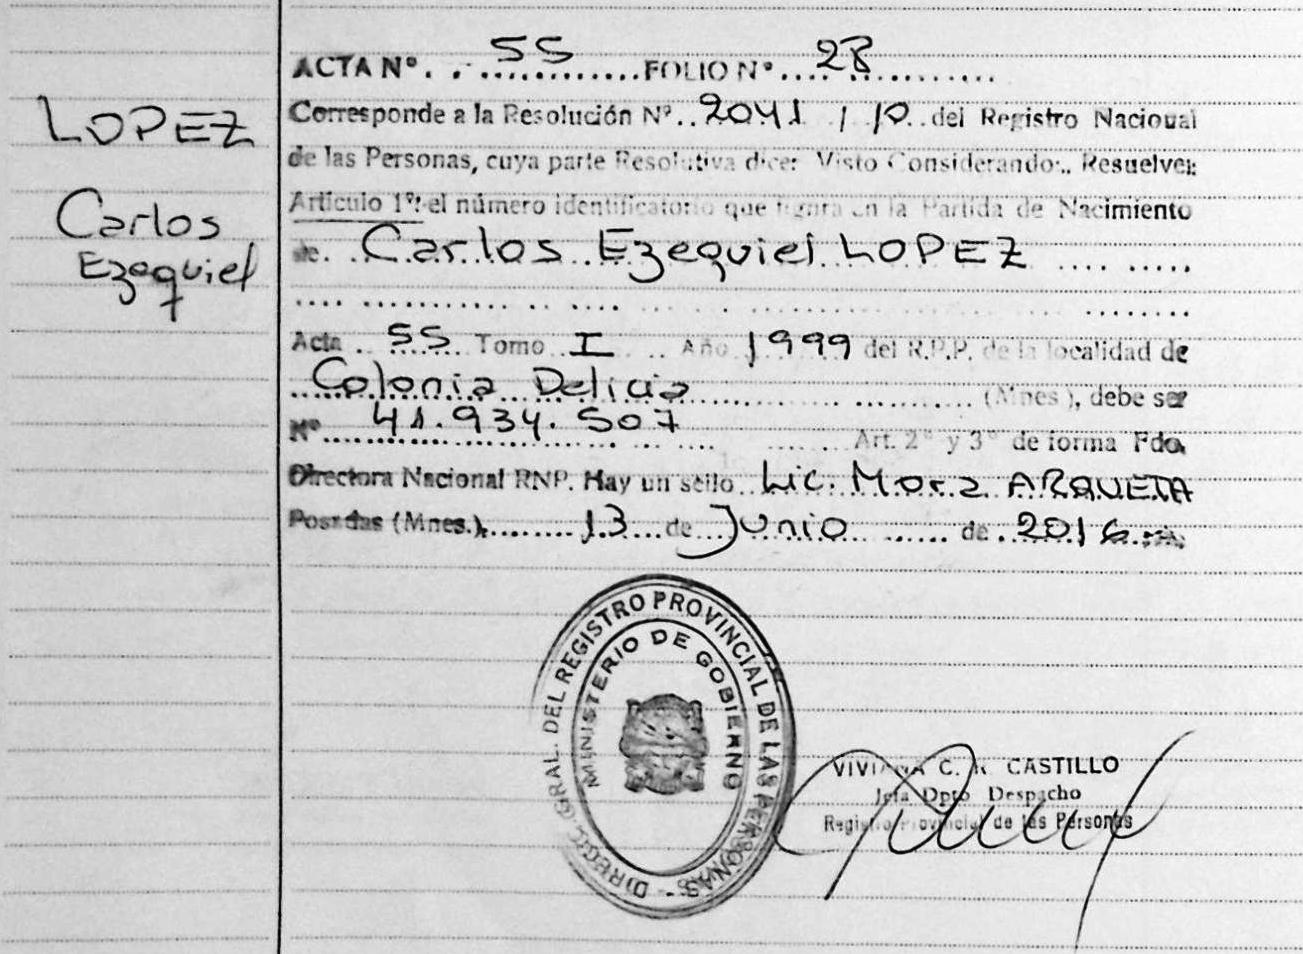 LOPEZ
Carlos
Ezequiel
ACTA Nº. . 55 ............FOLIO Nº.... 28 ............
Corresponde a la Resolución Nº.. 2041 / 10 ..del Registro Nacional
de las Personas, cuya parte Resolutiva dice: Visto Considerando:.. Resuelve:
Artículo 1º: el número identificatorio que figura en la Partida de Nacimiento
de. Carlos Ezequiel LOPEZ .... .....
Acta .. 55 Tomo I .. Año 1999 del R.P.P. de la localidad de
Colonia Delicia ............ (Mnes), debe ser
Nº 41.934.507 ........ Art. 2º y 3º de forma Fdo.
Directora Nacional RNP. Hay un sello Lic. Mora ARQUETA
Posadas (Mnes.)......... 13 ...de Junio ...... de 2016
DIREC. GRAL. DEL REGISTRO PROVINCIAL DE LAS PERSONAS -
MINISTERIO DE GOBIERNO
VIVIANA C. CASTILLO
Jefa Dpto Despacho
Registro Provincial de las Personas